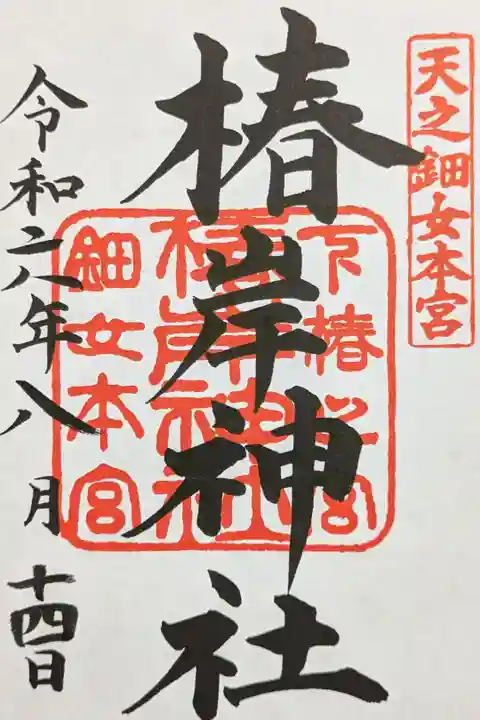 天之鈿女本宮
椿岸神社
下椿
椿岸神社
鈿女本宮
令和六年八月十四日